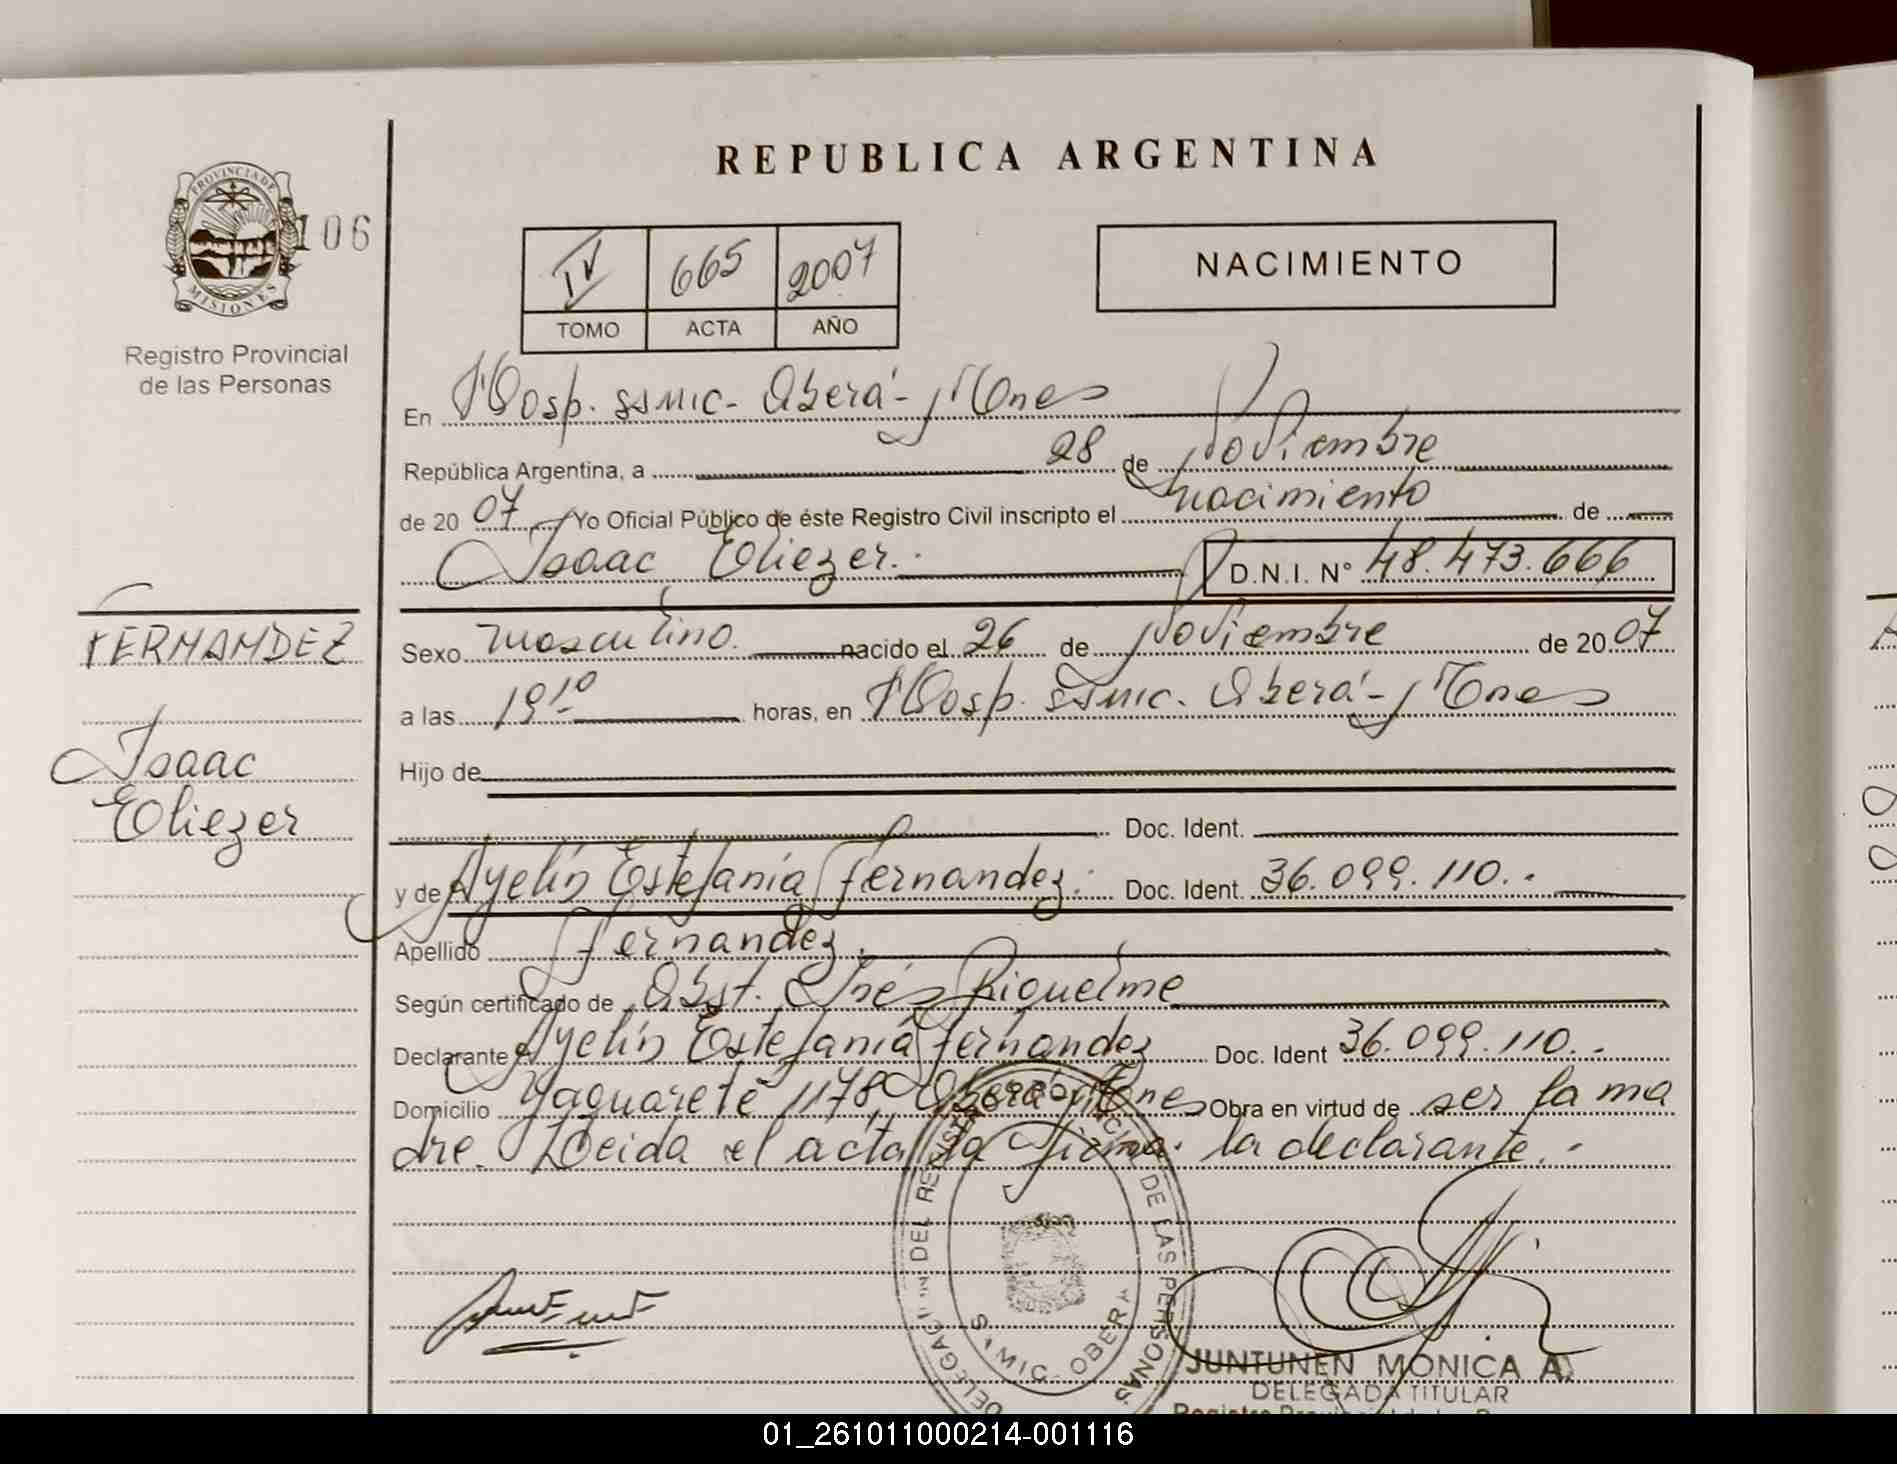 REPUBLICA ARGENTINA
PROVINCIA DE
MISIONES
106
Registro Provincial
de las Personas
IV 665 2007
TOMO ACTA AÑO
NACIMIENTO
En Hosp. SSMIC- Oberá- Mnes
República Argentina, a 28 de Noviembre
de 2007 Yo Oficial Público de éste Registro Civil inscripto el nacimiento de
Isaac Eliezer.
D.N.I. Nº 48.473.666
FERNANDEZ
Isaac
Eliezer
Sexo masculino. nacido el 26 de Noviembre de 2007
a las 19:10 horas, en Hosp. SSMIC. Oberá- Mnes
Hijo de
Doc. Ident.
y de Ayelín Estefanía Fernandez. Doc. Ident. 36.099.110.-
Apellido Fernandez.
Según certificado de Obst. Inés Riquelme
Declarante Ayelín Estefanía Fernandez Doc. Ident 36.099.110.-
Domicilio Yaguareté 1178 Oberá Mnes Obra en virtud de ser la ma
dre. Leida el acta la firma la declarante.-
DELEGACION DEL REGISTRO PROVINCIAL DE LAS PERSONAS
SAMIC-OBERA
JUNTUNEN MONICA A.
DELEGADA TITULAR
01_261011000214-001116